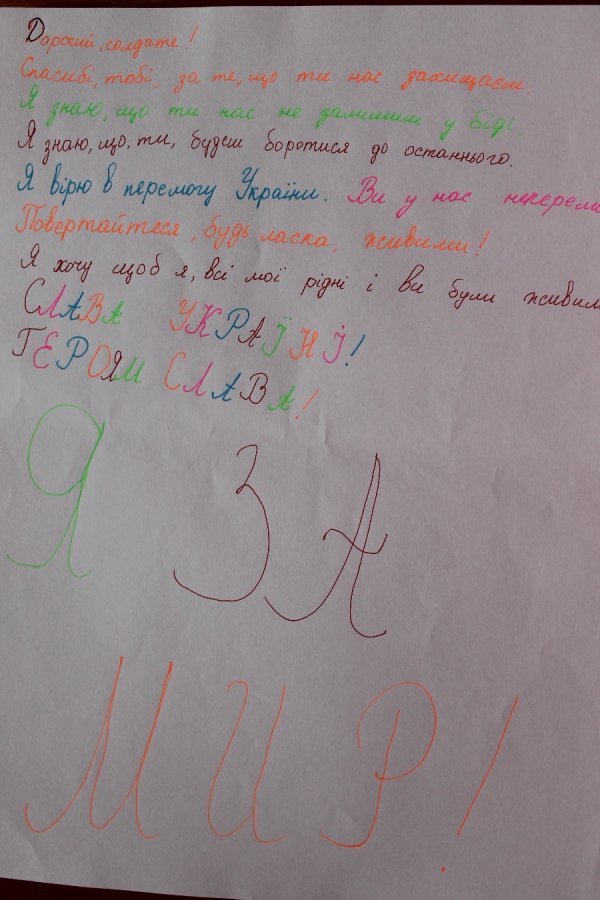 Дорогий, солдате!
Спасибі, тобі, за те, що ти нас захищаєш.
Я знаю, що ти нас не залишиш у біді.
Я знаю, що, ти, будеш боротися до останнього.
Я вірю в перемогу України. Ви у нас непереми
Повертайтеся, будь ласка, живими!
Я хочу щоб я, всі мої рідні і ви були живими
СЛАВА УКРАЇНІ!
ГЕРОЯМ СЛАВА!
Я ЗА
МИР!